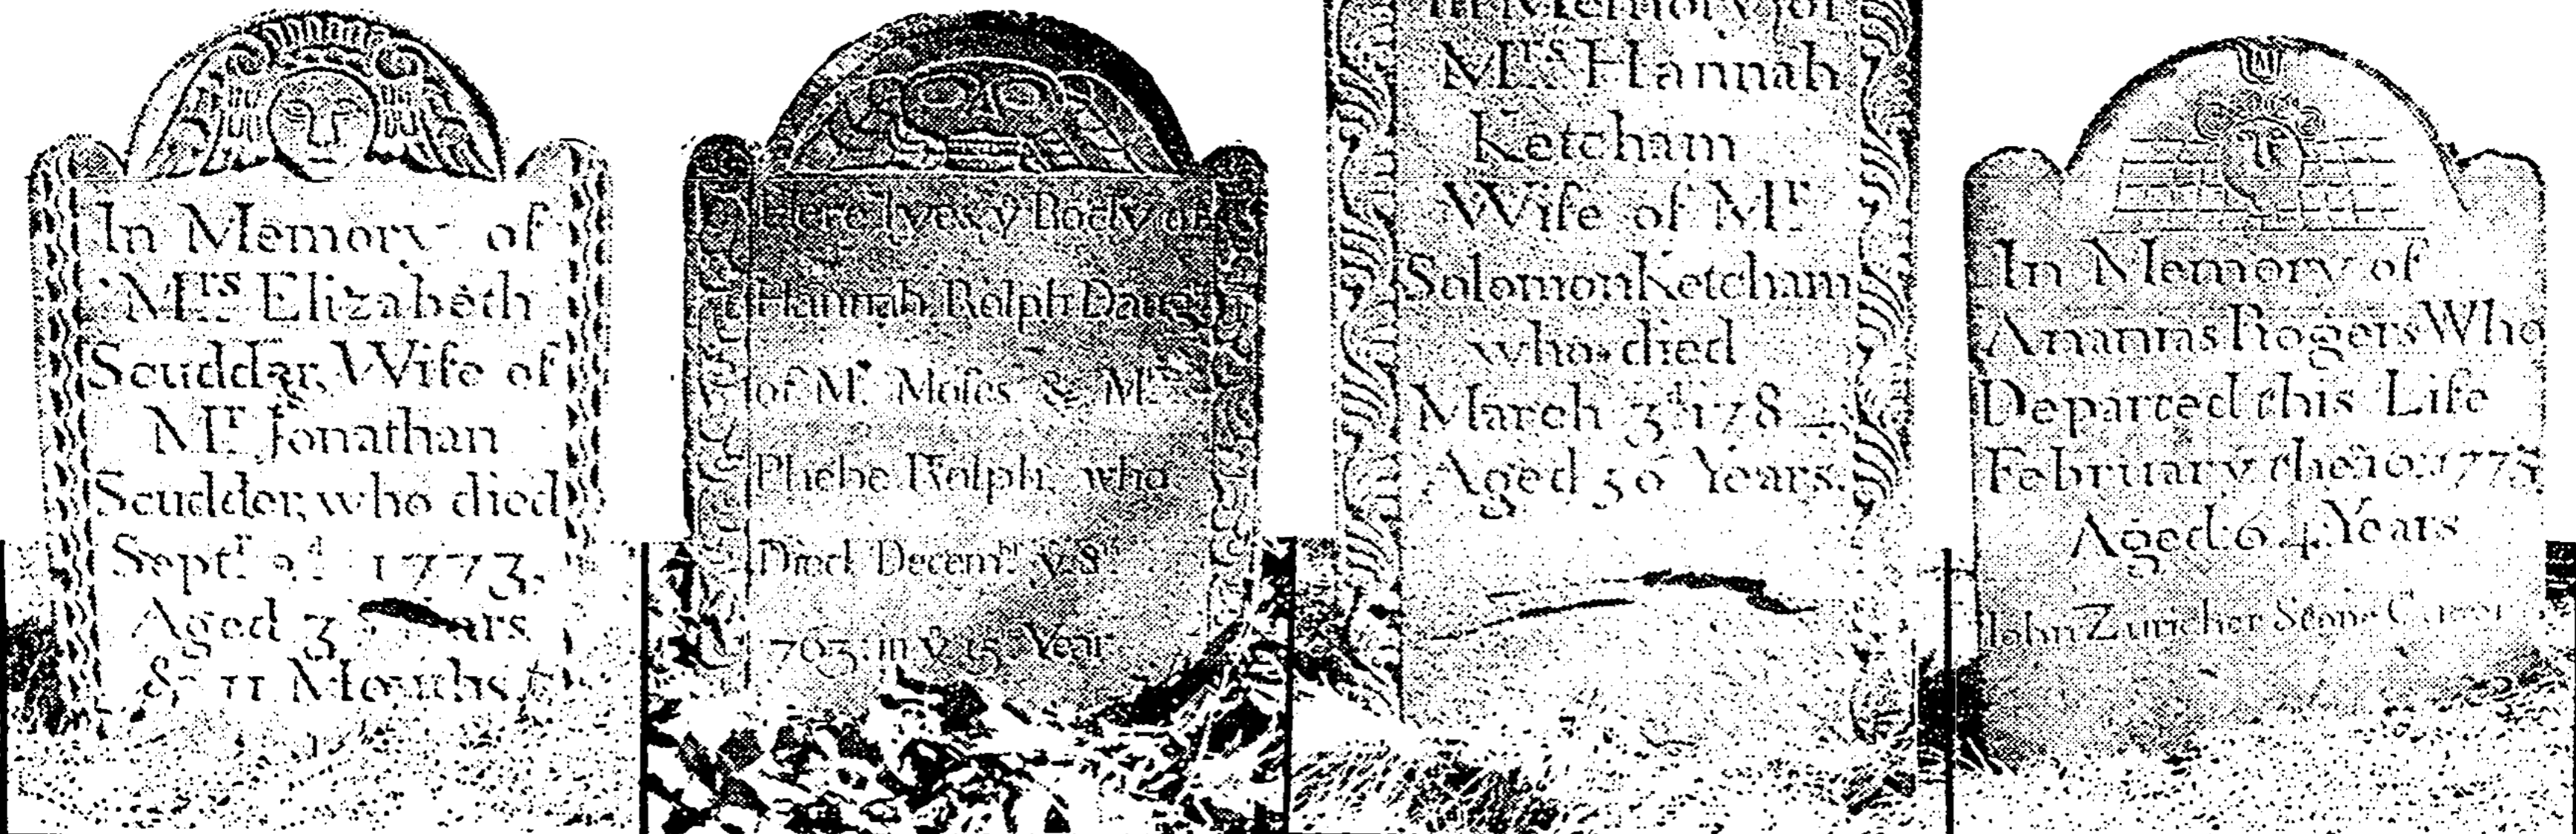 In Memory of
Mrs Elizabeth
Scudder, Wife of
Mr Jonathan
Scudder, who died
Septr 2d 1773.
Aged 3
& 11 Months
Here lyes ye Body of
Hannah Rolph Daugr
of Mr Moses & Mrs
Phebe Rolph, who
Died Decemr ye 8th
1763: in ye 15 Year
In Memory of
Mrs Hannah
Ketcham
Wife of Mr
Solomon Ketcham
who died
March 3d 178
Aged 56 Years.
In Memory of
Ananias Rogers Who
Departed this Life
February the 10: 1775
Aged 64 Years
John Zuricher Stone Cutter